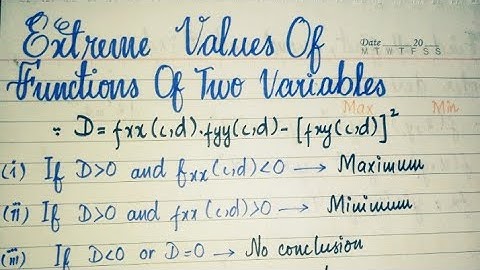 Extreme Values Of
Date 20
M T W T F S S
Functions Of Two Variables
Max Min
∵ D = fxx(c,d).fyy(c,d) - [fxy(c,d)]²
(i) If D>0 and fxx(c,d)<0 → Maximum
(ii) If D>0 and fxx(c,d)>0 → Minimum
(iii) If D<0 or D=0 → No conclusion